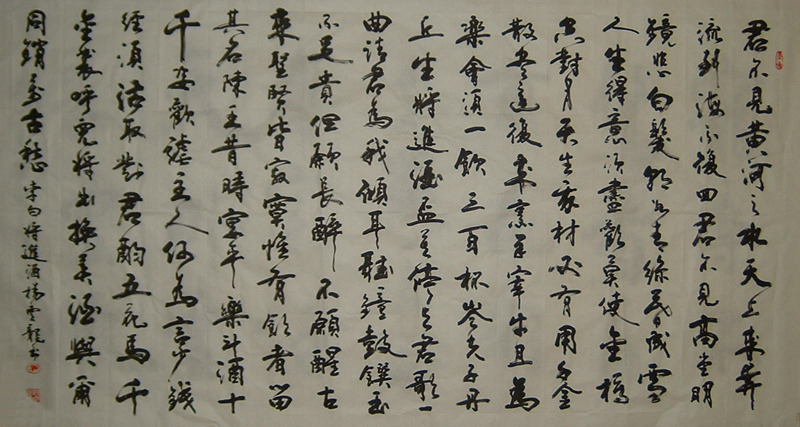 君不見黃河之水天上來奔
流到海不復回君不見高堂明
鏡悲白髮朝如青絲暮成雪
人生得意須盡歡莫使金樽
空對月天生我材必有用千金
散盡還復來烹羊宰牛且為
樂會須一飲三百杯岑夫子丹
丘生將進酒盃莫停與君歌一
曲請君為我傾耳聽鐘鼓饌玉
不足貴但願長醉不願醒古
來聖賢皆寂寞惟有飲者留
其名陳王昔時宴平樂斗酒十
千恣歡謔主人何為言少錢
徑須沽取對君酌五花馬千
金裘呼兒將出換美酒與爾
同銷萬古愁 李白將進酒楊雲龍書